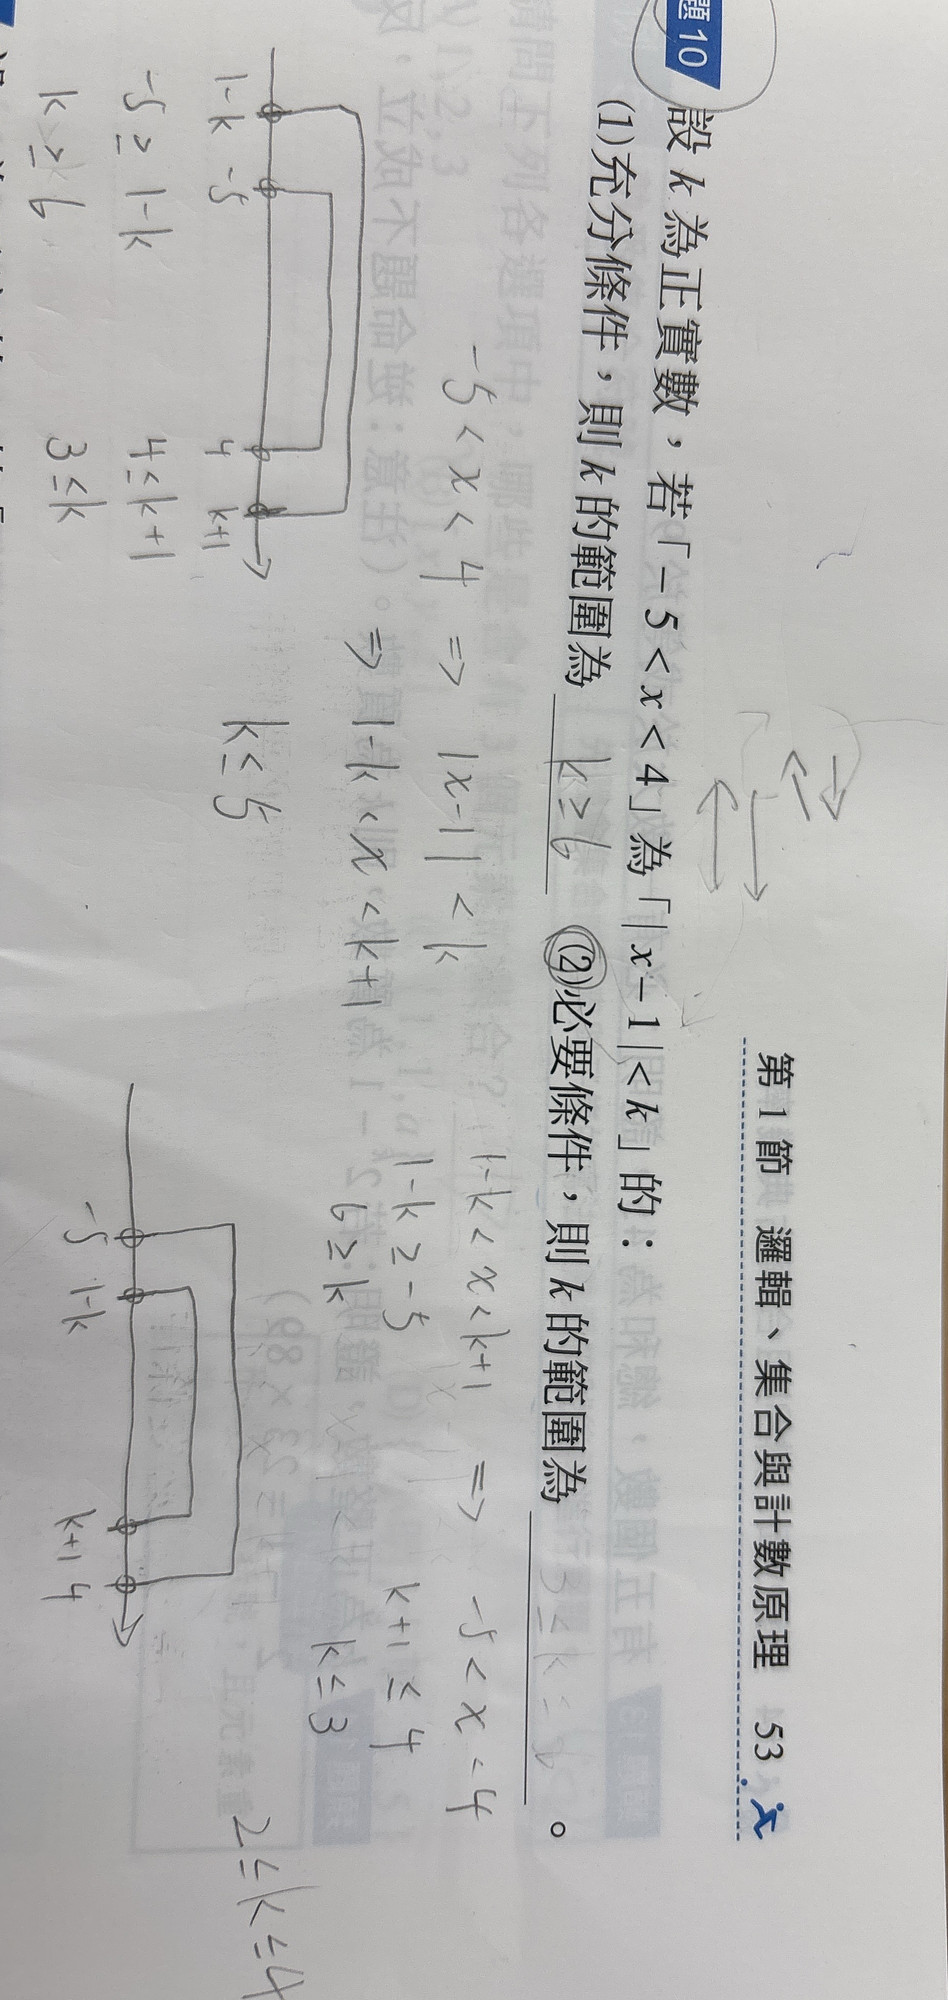 第1節 邏輯、集合與計數原理 53
題10
設 k 為正實數，若「-5<x<4」為「|x-1|<k」的：
(1)充分條件，則 k 的範圍為 k≥6 (2)必要條件，則 k 的範圍為 。
-5<x<4 ⇒ |x-1|<k
⇒ 1-k<x<k+1
1-k -5 4 k+1
-5≥1-k 4≤k+1
k≥6 3≤k
k≤5
1-k<x<k+1 ⇒ -5<x<4
1-k≥-5 k+1≤4
6≥k k≤3
-5 1-k k+1 4
2≤k≤4